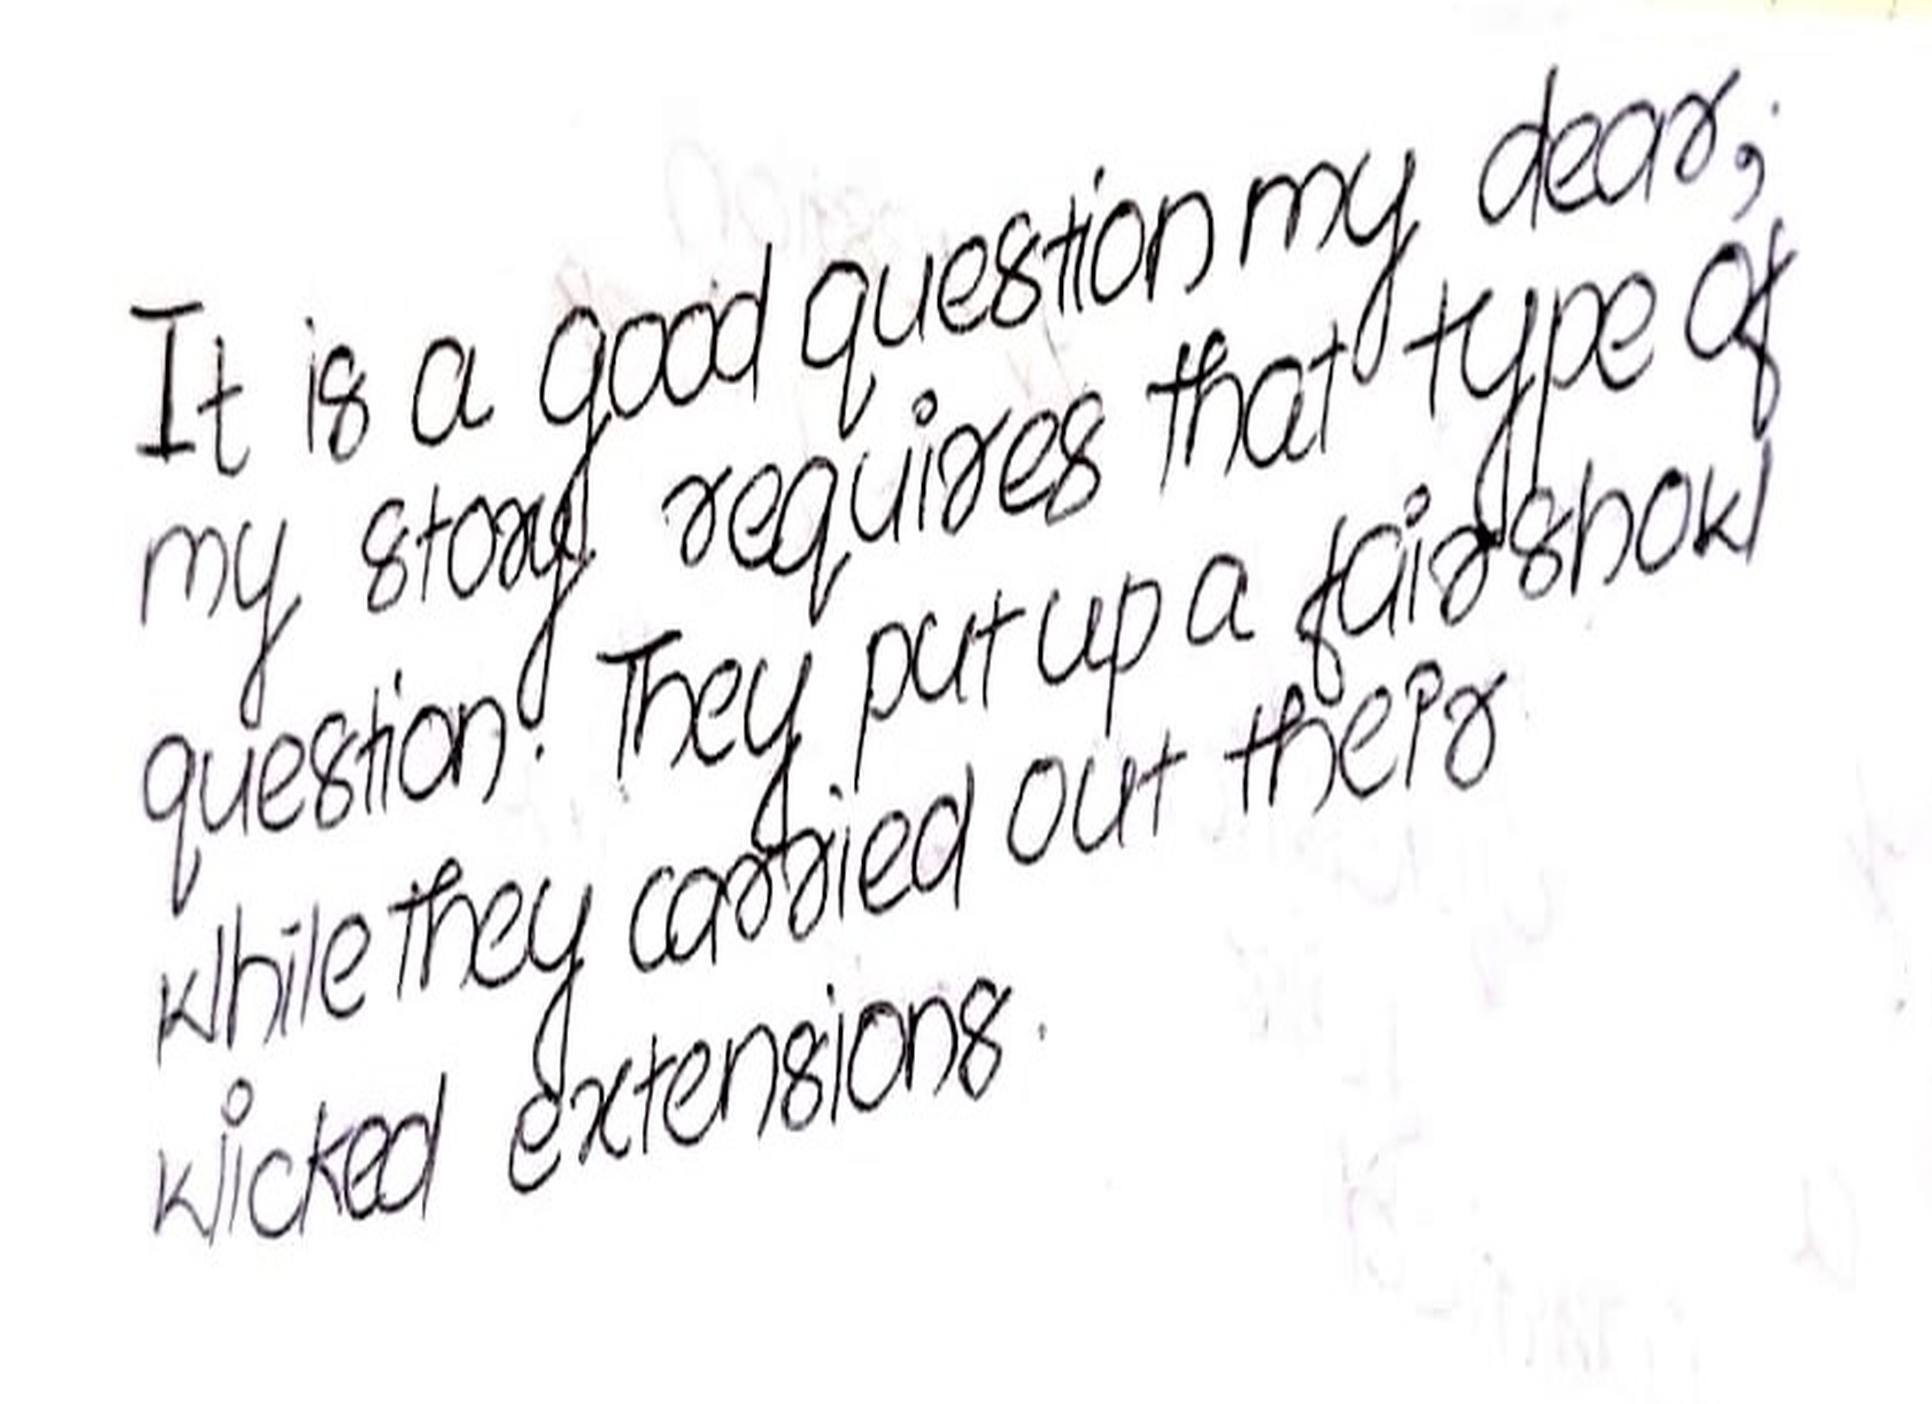 It is a good question my dear;
my story requires that type of
question. They put up a fair show
while they carried out their
wicked extensions.